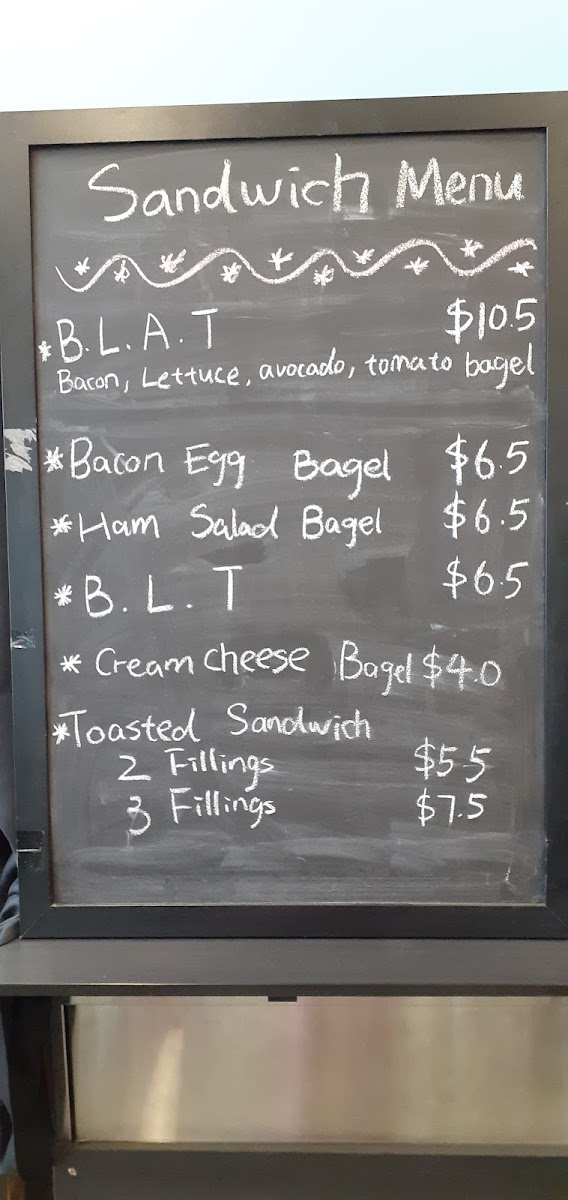 Sandwich Menu
*B.L.A.T $10.5
Bacon, Lettuce, avocado, tomato bagel
*Bacon Egg Bagel $6.5
*Ham Salad Bagel $6.5
*B.L.T $6.5
*Cream cheese Bagel $4.0
*Toasted Sandwich
2 Fillings $5.5
3 Fillings $7.5